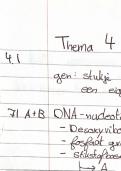 Thema 4
4.1
gen: stukje
een eig
71 A+B DNA-nucleot
- Desoxyribo
- fosfaat gr
- stikstofbase
↳ A